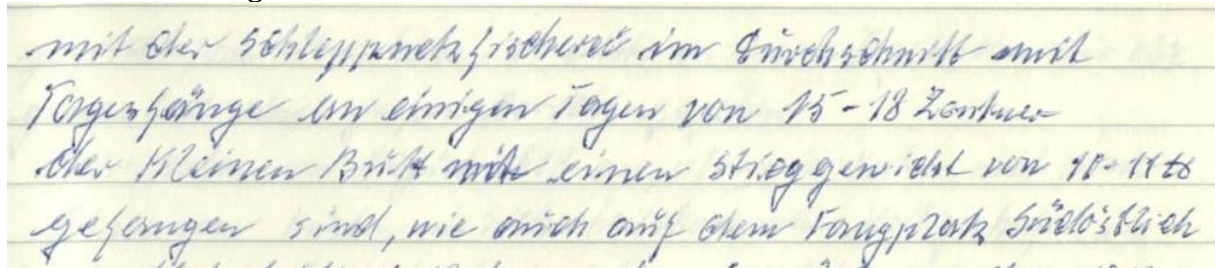 mit der Schleppnetzfischerei im Durchschnitt mit
Tagesfänge an einigen Tagen von 15-18 Zentner
der Kleinen Butt mit einen Stieggewicht von 10-11 ℔
gefangen sind, wie auch auf dem Fangplatz Südöstlich